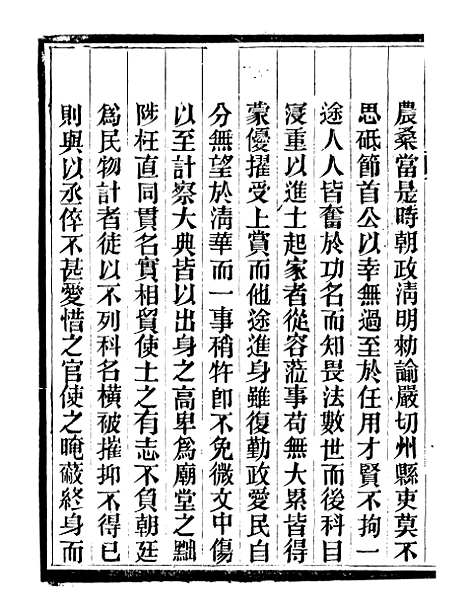 農桑當是時朝政淸明勅諭嚴切州縣吏莫不
思砥節首公以幸無過至於任用才賢不拘一
途人人皆奮於功名而知畏法數世而後科目
寖重以進士起家者從容蒞事苟無大累皆得
蒙優擢受上賞而他途進身雖復勤政愛民自
分無望於淸華而一事稍牾卽不免微文中傷
以至計察大典皆以出身之高卑爲廟堂之黜
陟枉直同貫名實相貿使士之有志不負朝廷
爲民物計者徒以不列科名橫被摧抑不得已
則與以丞倅不甚愛惜之官使之晻蔽終身而